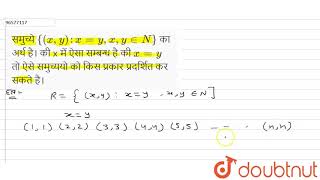 96577117
समुच्चे {(x, y) : x = y, x, y ∈ N} का
अर्थ है। की x में ऐसा सम्बन्ध है की x = y
तो ऐसे समुच्चयो को किस प्रकार प्रदर्शित कर
सकते है।
R = { (x,y) : x=y , x,y ∈ N }
x=y
(1,1) (2,2) (3,3) (4,4) (5,5) - - - . (n,n)
doubtnut